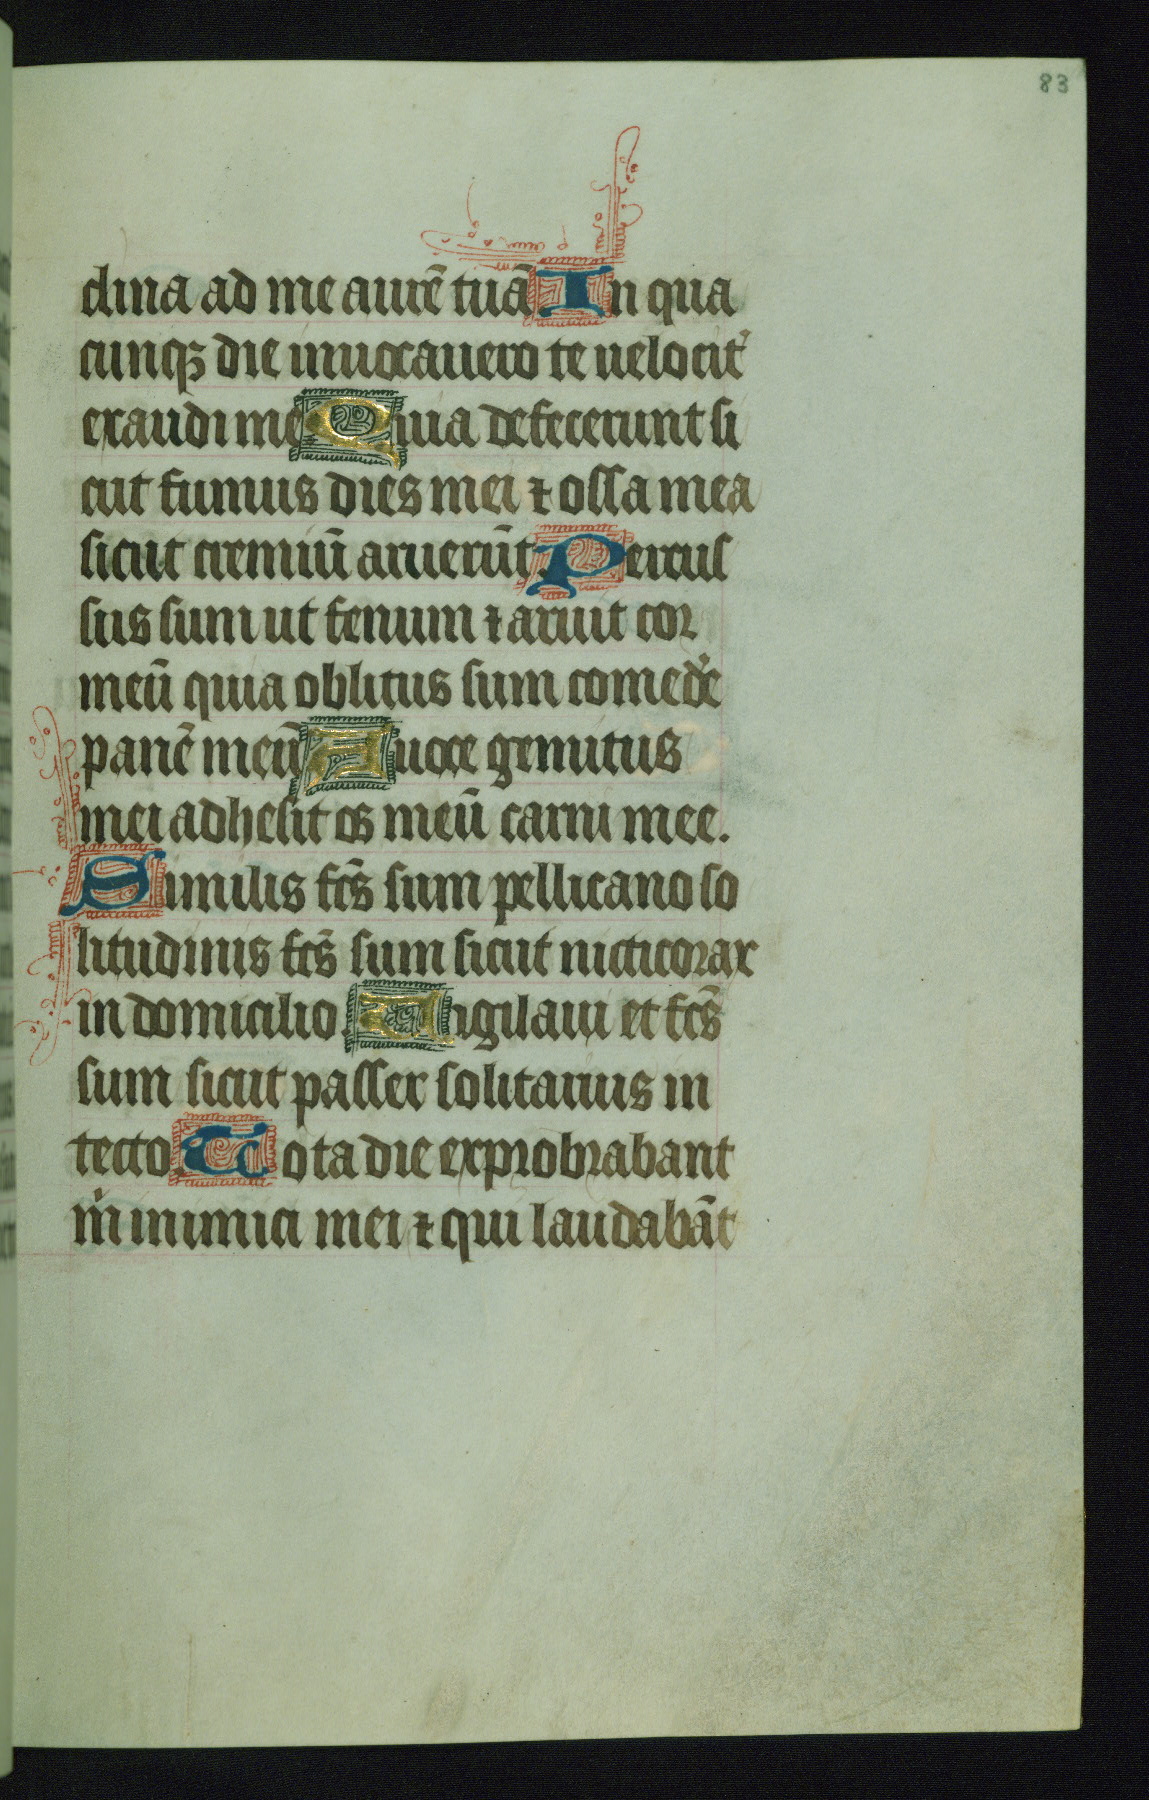 83
clina ad me aurē tuā In qua
cunqꝫ die inuocauero te uelocit᷑
exaudi me Quia defecerunt si
cut fumus dies mei ⁊ ossa mea
sicut cremiū aruerūt Percus
sus sum ut fenum ⁊ aruit cor
meū quia oblitus sum comed᷑e
panē meū A uoce gemitus
mei adhesit os meū carni mee.
Similis fc̄s sum pellicano so
litudinis fc̄s sum sicut nicticorax
in domicilio. Uigilaui et fc̄s
sum sicut passer solitarius in
tecto. Tota die exprobrabant
m̍ inimici mei ⁊ qui laudabāt